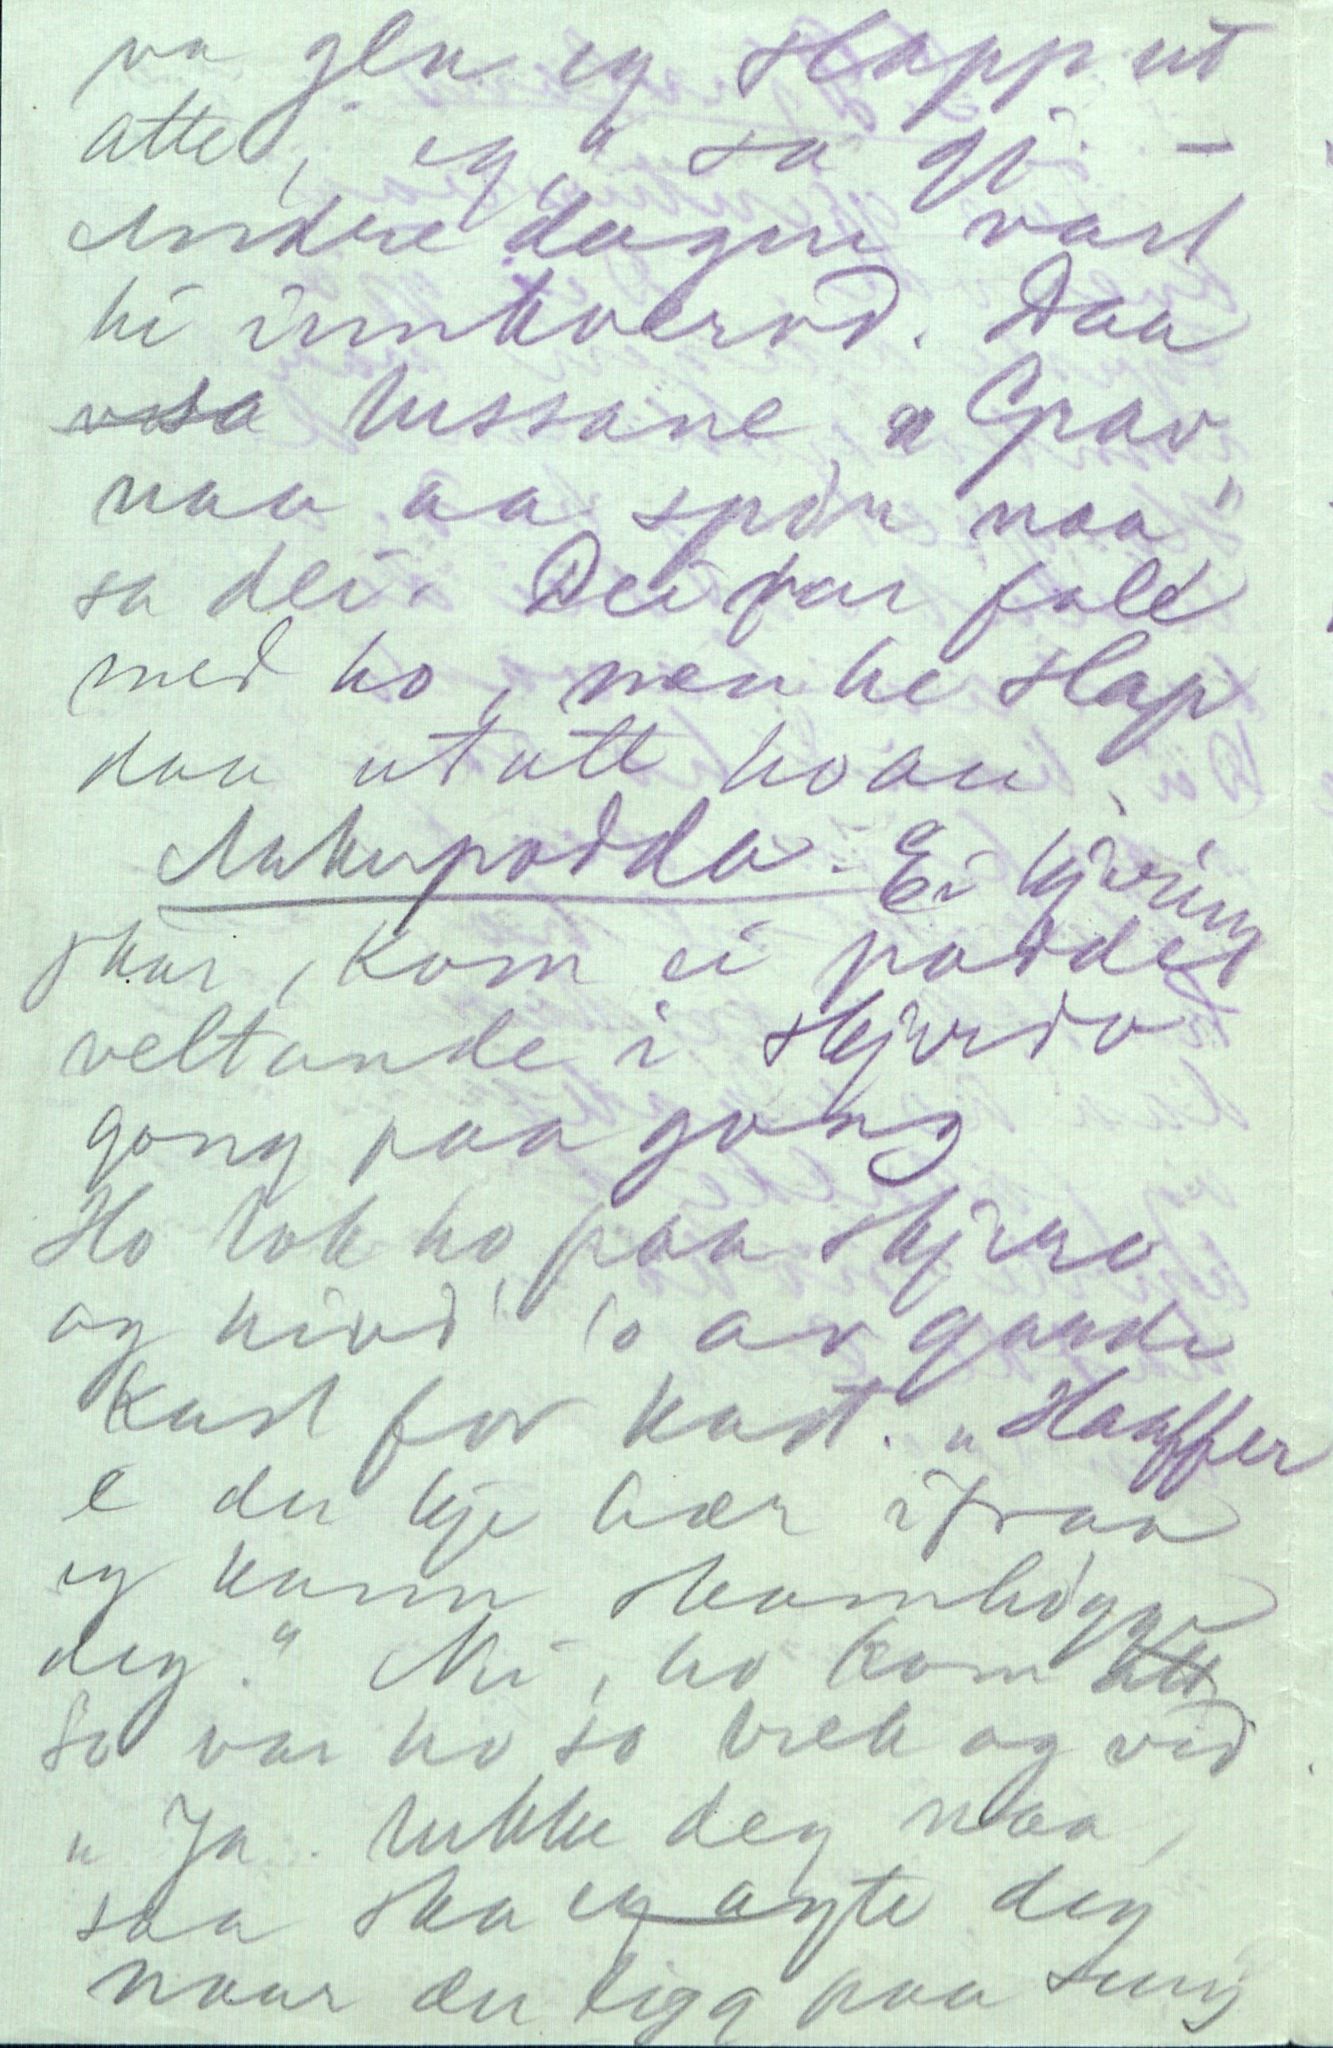 va gla eg slapp ut
atte, eg" sa gj –
Andre dagen vart
hi innkvervd. Daa
sa tussane "Grav
naa aa spön naa"
sa dei. Dei for fale
med ho, men he slap
daa utatt hoau.
Aakerpodda. Ei kjæring
skar, kom ei podde
veltande i skjurdo
gong paa gong
Ho tok ho paa skjuro
og hivd' 'o av garde
Kast for kast. "Haaffer
e du kje hær ifraa
eg kann skamhögga
deg." Nei, ho kom att
So var ho so brek og vid.
"Ja. tukke deg naa,
saa ska eg agte deg
naar du ligg paa seng